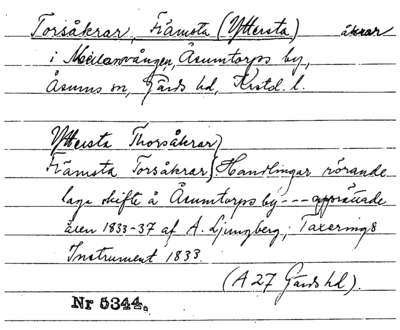 Torsåkrar, Främsta (Yttersta) åkrar
i Mellanvången, Åsumtorps by,
Åsums sn, Gärds hd, Kristd. l.
Yttersta Thorsåkrar)
Främsta Torsåkrar) Handlingar rörande
laga skifte å Åsumtorps by --- upprättade
åren 1833-37 af A. Ljungberg; Taxerings
Instrument 1833.
(A 27 Gärds hd).
Nr 5344.